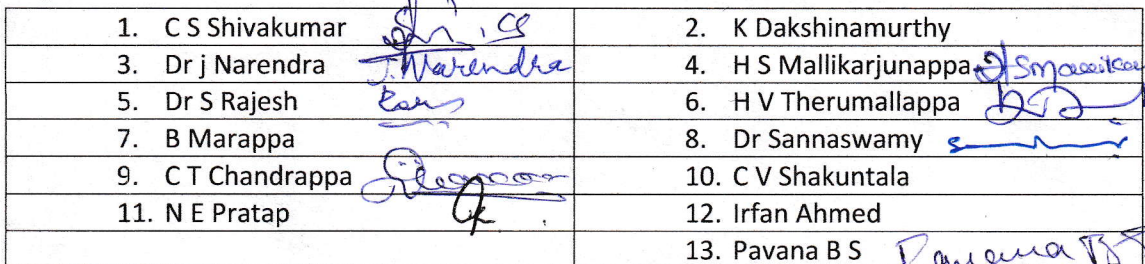 1. C S Shivakumar 2. K Dakshinamurthy
3. Dr j Narendra J. Narendra 4. H S Mallikarjunappa
5. Dr S Rajesh 6. H V Therumallappa
7. B Marappa 8. Dr Sannaswamy
9. C T Chandrappa 10. C V Shakuntala
11. N E Pratap 12. Irfan Ahmed
13. Pavana B S Pavana B S